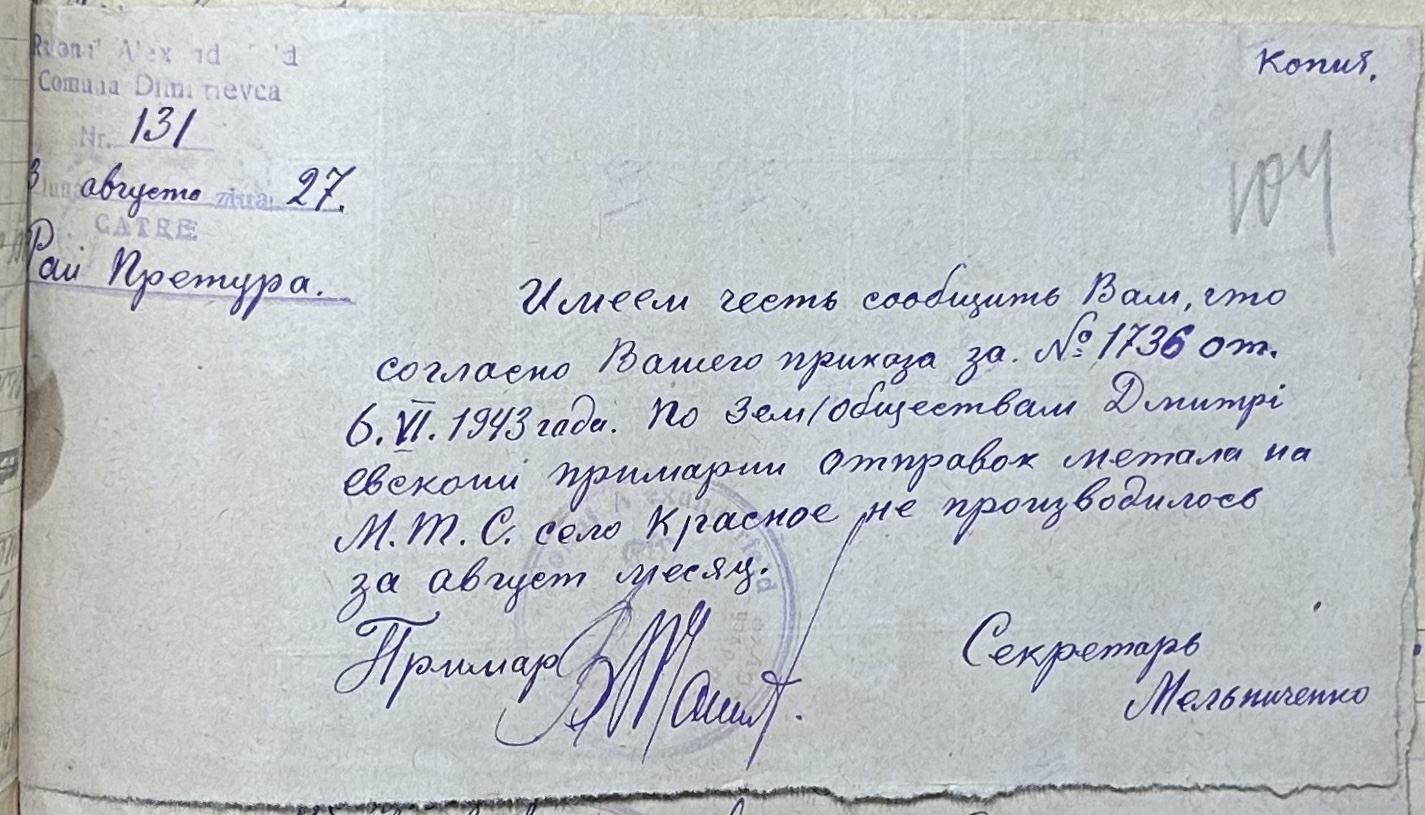 Копия.
Comuna Dimitrievca
Nr. 131
августа ziua 27.
CATRE
Рай Претура.
104
Имеем честь сообщить Вам, что
согласно Вашего приказа за. № 1736 от.
6. VI. 1943 года. По Зем/обществам Дмитрі
евской примарии отправок метала на
М.Т.С. село Красное не производилось
за август месяц.
Примар
Секретарь
Мельниченко